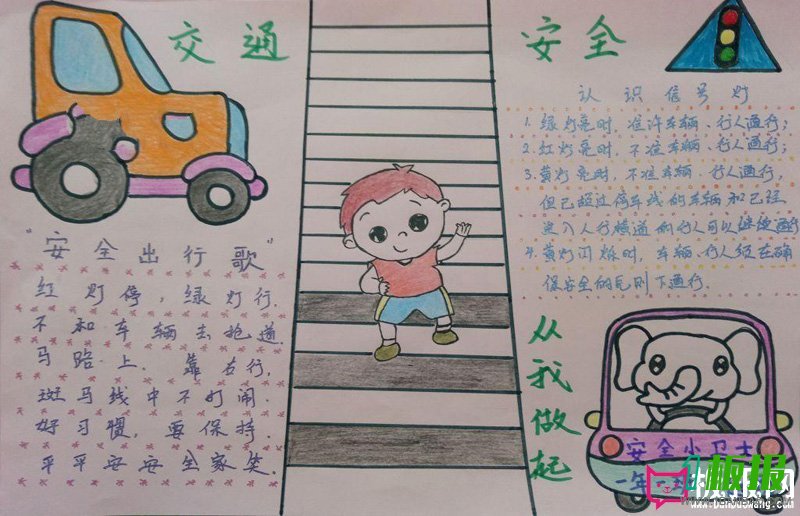 交通
安全
"安全出行歌"
红灯停，绿灯行．
不和车辆去抢道．
马路上．靠右行，
斑马线中不打闹．
好习惯，要保持．
平平安安全家笑．
认识信号灯
1. 绿灯亮时，准许车辆、行人通行；
2. 红灯亮时，不准车辆、行人通行；
3. 黄灯亮时，不准车辆、行人通行，
但已超过停车线的车辆和已经
进入人行横道的行人可以继续通行
4. 黄灯闪烁时，车辆、行人须在确
保安全的原则下通行．
从我做起
安全小卫士
一年一班
板报网
www.banbaowang.com